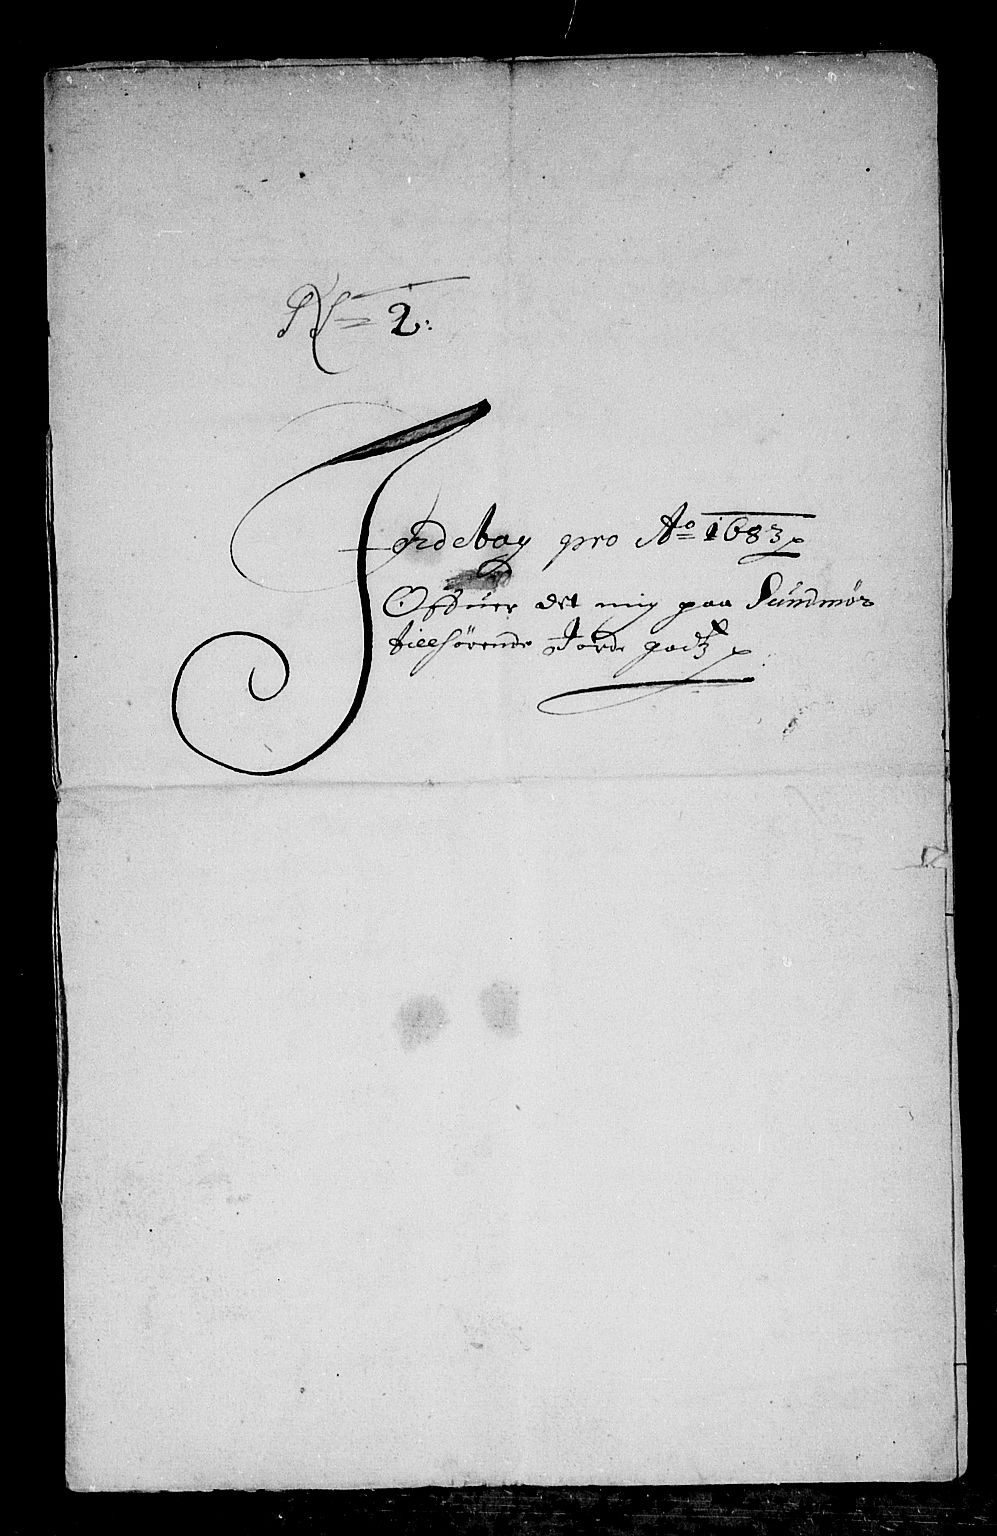 No 2:
Jordebog pro Ao 1683
Ofduer det mig paa Sundmør
tillhørende Jorde godtz